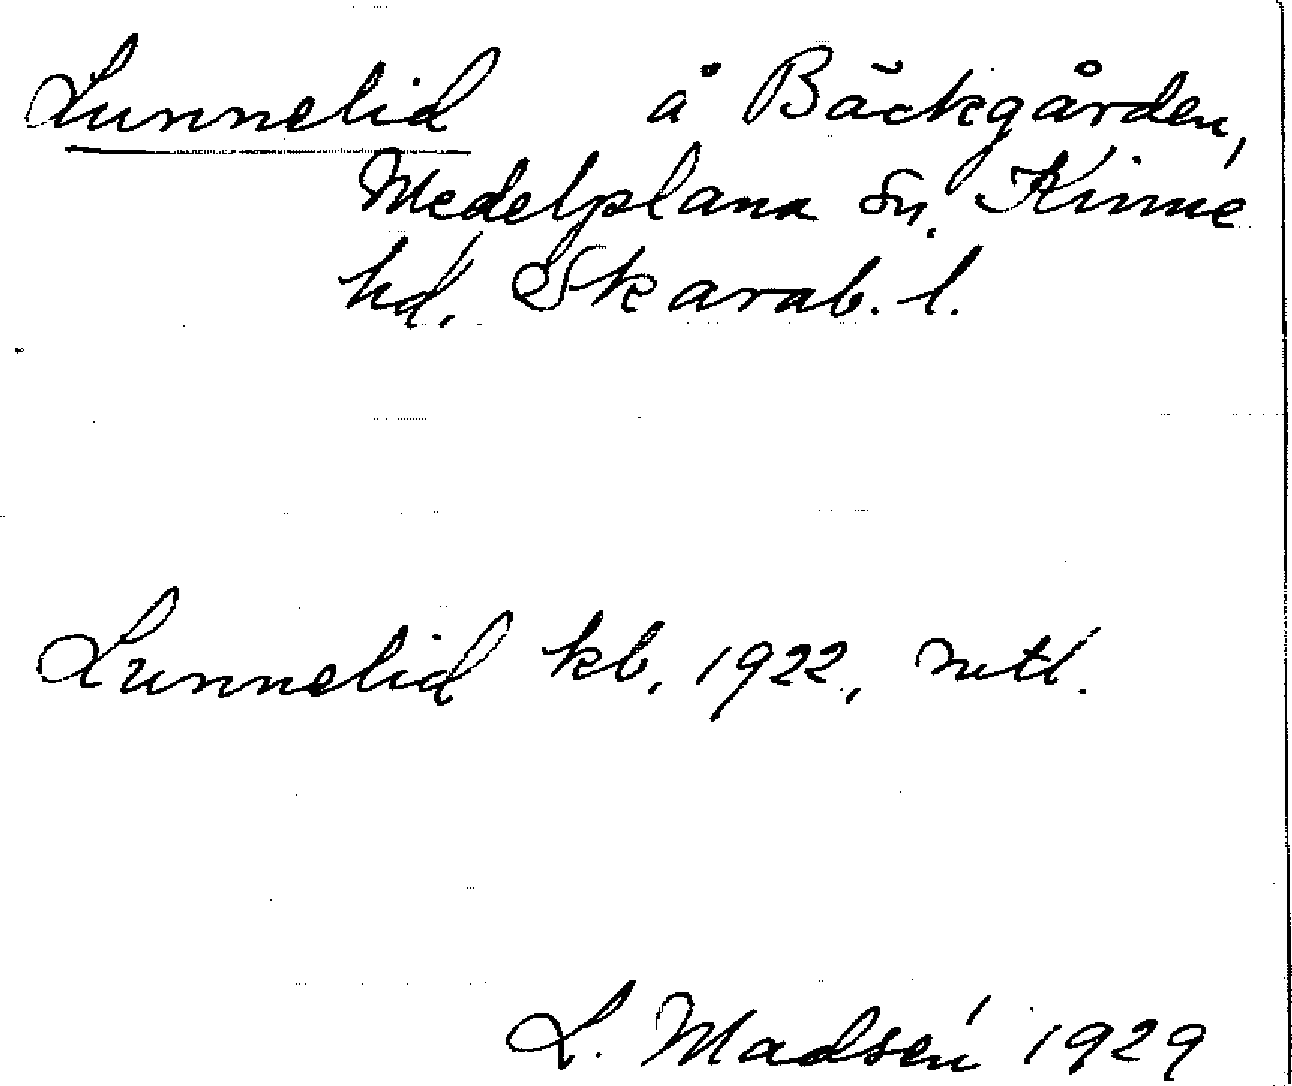 Lunnelid å Bäckgården,
Medelplana sn. Kinne
hd. Skarab. l.
Lunnelid kb. 1922, mtl.
L. Madsén 1929